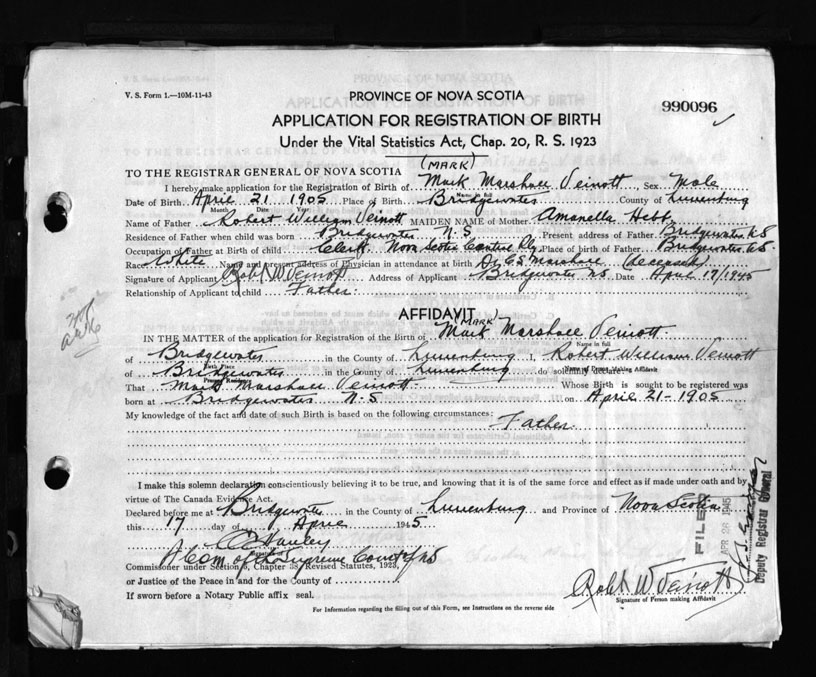 V. S. Form 1.—10M-11-43
PROVINCE OF NOVA SCOTIA
990096
APPLICATION FOR REGISTRATION OF BIRTH
Under the Vital Statistics Act, Chap. 20, R. S. 1923
(MARK)
TO THE REGISTRAR GENERAL OF NOVA SCOTIA
I hereby make application for the Registration of Birth of Mark Marshall Veinott, Sex Male
Name in full
Date of Birth April 21 1905 Place of Birth Bridgewater County of Lunenburg
Month Date Year
Name of Father Robert William Veinott MAIDEN NAME of Mother Amanella Hebb
Residence of Father when child was born Bridgewater N. S. Present address of Father Bridgewater N.S.
Occupation of Father at Birth of child Clerk Nova Scotia Central Ry Place of birth of Father Bridgewater N.S.
Race White Name and present address of Physician in attendance at birth Dr C S Marshall (deceased)
Signature of Applicant Robt W Veinott Address of Applicant Bridgewater N S. Date April 17/1945
Relationship of Applicant to child Father.
AFFIDAVIT
(MARK)
IN THE MATTER of the application for Registration of the Birth of Mark Marshall Veinott
Name in full
of Bridgewater in the County of Lunenburg I, Robert William Veinott
Birth Place Name of Person Making Affidavit
of Bridgewater in the County of Lunenburg do solemnly declare
Present Residence
That Mark Marshall Veinott Whose Birth is sought to be registered was
born at Bridgewater N-S on April 21-1905
My knowledge of the fact and date of such Birth is based on the following circumstances: Father.
I make this solemn declaration conscientiously believing it to be true, and knowing that it is of the same force and effect as if made under oath and by
virtue of The Canada Evidence Act.
Declared before me at Bridgewater in the County of Lunenburg and Province of Nova Scotia
this 17 day of April 1945
A Com of the Supreme Court of NS
Commissioner under Section 6, Chapter 38 Revised Statutes, 1923,
or Justice of the Peace in and for the County of
If sworn before a Notary Public affix seal.
Robt W Veinott
Signature of Person making Affidavit
For Information regarding the filling out of this Form, see Instructions on the reverse side
FILED
APR 28 1945
Deputy Registrar General